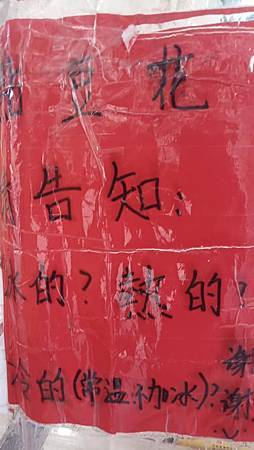 豆花
告知:
冰的?熱的?
冷的(常温不加冰)?
謝
謝